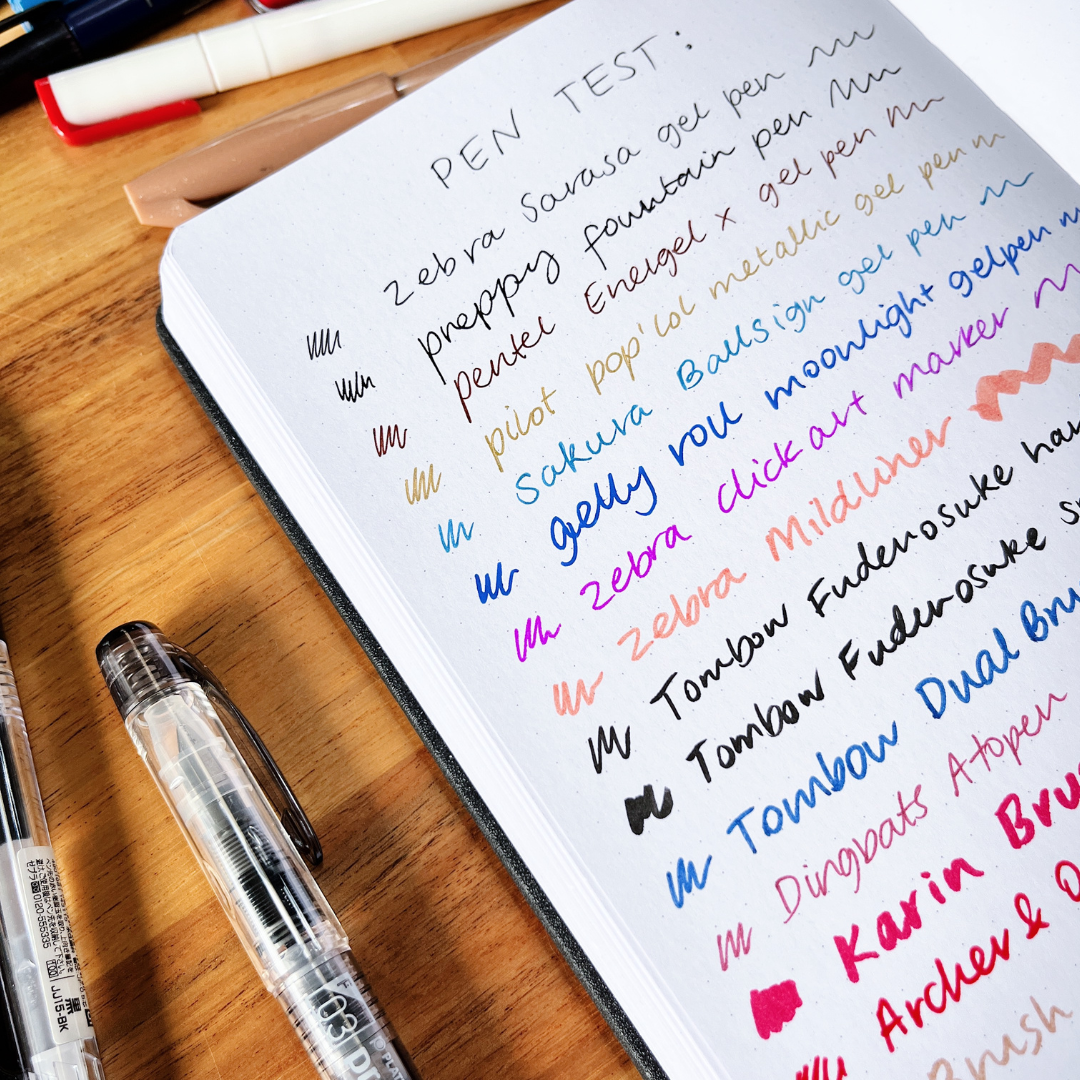 PEN TEST:
zebra Sarasa gel pen
preppy fountain pen
pentel Energel x gel pen
pilot pop'lol metallic gel pen
Sakura Ballsign gel pen
gelly roll moonlight gelpen
zebra clickart marker
zebra Mildliner
Tombow Fudenosuke har
Tombow Fudenosuke
Tombow Dual Bru
Dingbats Atopen
Karin Brus
Archer & O
Brush
0120-555335
JJ15-BK
黒
03
PLAT